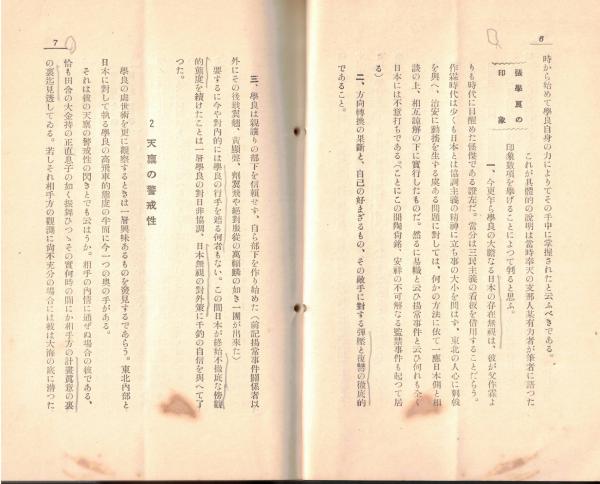 6
時から始めて學良自身の力によりてその手中に掌握されたと云ふべきである。
張學良の
印象
これが具體的の說明は當時奉天の支那人某有力者が筆者に語つた
印象數項を擧げることによつて判ると思ふ。
一、今更乍ら學良の大膽なる日本の存在無視は、彼が父作霖よ
りも時代に目醒めた怪傑である證左だ。當分は三民主義の看板を借用することだらう。
作霖時代は少くも日本とは協調主義の精神に立ち事の大小を問はず、東北の人心に刺戟
を與へ、治安に動搖を生ずる虞ある問題に對しては、何かの方法に依て一應日本側と相
談の上、相互諒解の下に實行したものだ。然るに易幟と云ひ楊常事件と云ひ何れも全く
日本には不意打ちである(ことにこの間陶尙銘、安祥の不可解なる監禁事件も起つて居
る)
二、方向轉換の果斷と、自己の好まざるもの、その敵手に對する彈壓と復讐の徹底的
であること。
7
三、學良は親讓りの部下を信賴せず、自ら部下を作り始めた(前記楊常事件關係者以
外にその後戢翼翹、黃顯聲、劑翼飛や絕對服從の萬福麟の如き一團が出來た)
要するに今や對內的には學良の行手を遮る何者もない。この間日本が終始不徹底な傍觀
的態度を續けたことは一層學良の對日非協調、日本無視の對外策に千鈞の自信を與へて了
つた。
2 天稟の警戒性
學良の處世術を更に觀察するときは一層興味あるものを發見するであらう。東北內部と
日本に對して執る學良の高飛車的態度の半面に今一つの奧の手がある。
それは彼の天稟の警戒性の閃きとでも云はうか。相手の內情に通ぜぬ場合の彼である、
恰も田舍の大金持の正直息子の如く振舞ひつゝその實何時の間にか相手方の計畫眞意の裏
の裏迄見透してゐる。若しそれ相手方の觀測に尙不充分の場合には彼は大海の底に潛つた